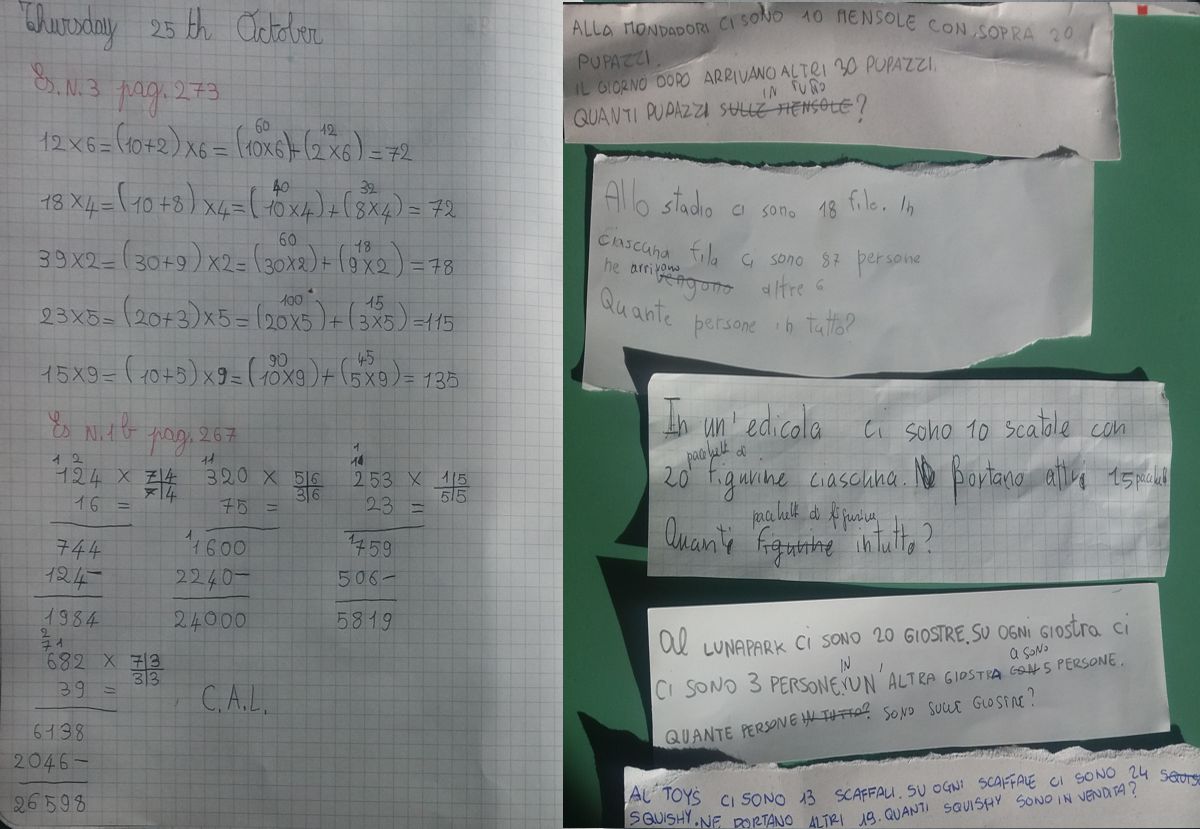 Thursday 25 th October
Es. N. 3 pag. 273
12×6=(10+2)×6=(10×6)+(2×6)=72
60 12
18×4=(10+8)×4=(10×4)+(8×4)=72
40 32
39×2=(30+9)×2=(30×2)+(9×2)=78
60 18
23×5=(20+3)×5=(20×5)+(3×5)=115
100 15
15×9=(10+5)×9=(10×9)+(5×9)=135
90 45
Es N. 1b pag. 267
124 × 7|4
16 = 7|4
744
124-
1984
320 × 5|6
75 = 3|6
1600
2240-
24000
253 × 1|5
23 = 5|5
759
506-
5819
682 × 7|3
39 = 3|3
6138
2046-
26598
C.A.L.
ALLA MONDADORI CI SONO 10 MENSOLE CON SOPRA 20
PUPAZZI.
IL GIORNO DOPO ARRIVANO ALTRI 30 PUPAZZI.
IN TUTTO
QUANTI PUPAZZI SULLE MENSOLE?
Allo stadio ci sono 18 file. In
ciascuna fila ci sono 87 persone
ne arrivano vengono altre 6
Quante persone in tutto?
In un' edicola ci sono 10 scatole con
pacchetti di
20 figurine ciascuna. Portano altri 15 pacchetti
pacchetti di figurine
Quanti figurine in tutto?
Al LUNAPARK CI SONO 20 GIOSTRE. SU OGNI GIOSTRA CI
CI SONO 3 PERSONE. IN UN' ALTRA GIOSTRA CI SONO CON 5 PERSONE.
QUANTE PERSONE IN TUTTO? SONO SULLE GIOSTRE?
AL TOYS CI SONO 13 SCAFFALI. SU OGNI SCAFFALE CI SONO 24
SQUISHY. NE PORTANO ALTRI 19. QUANTI SQUISHY SONO IN VENDITA?